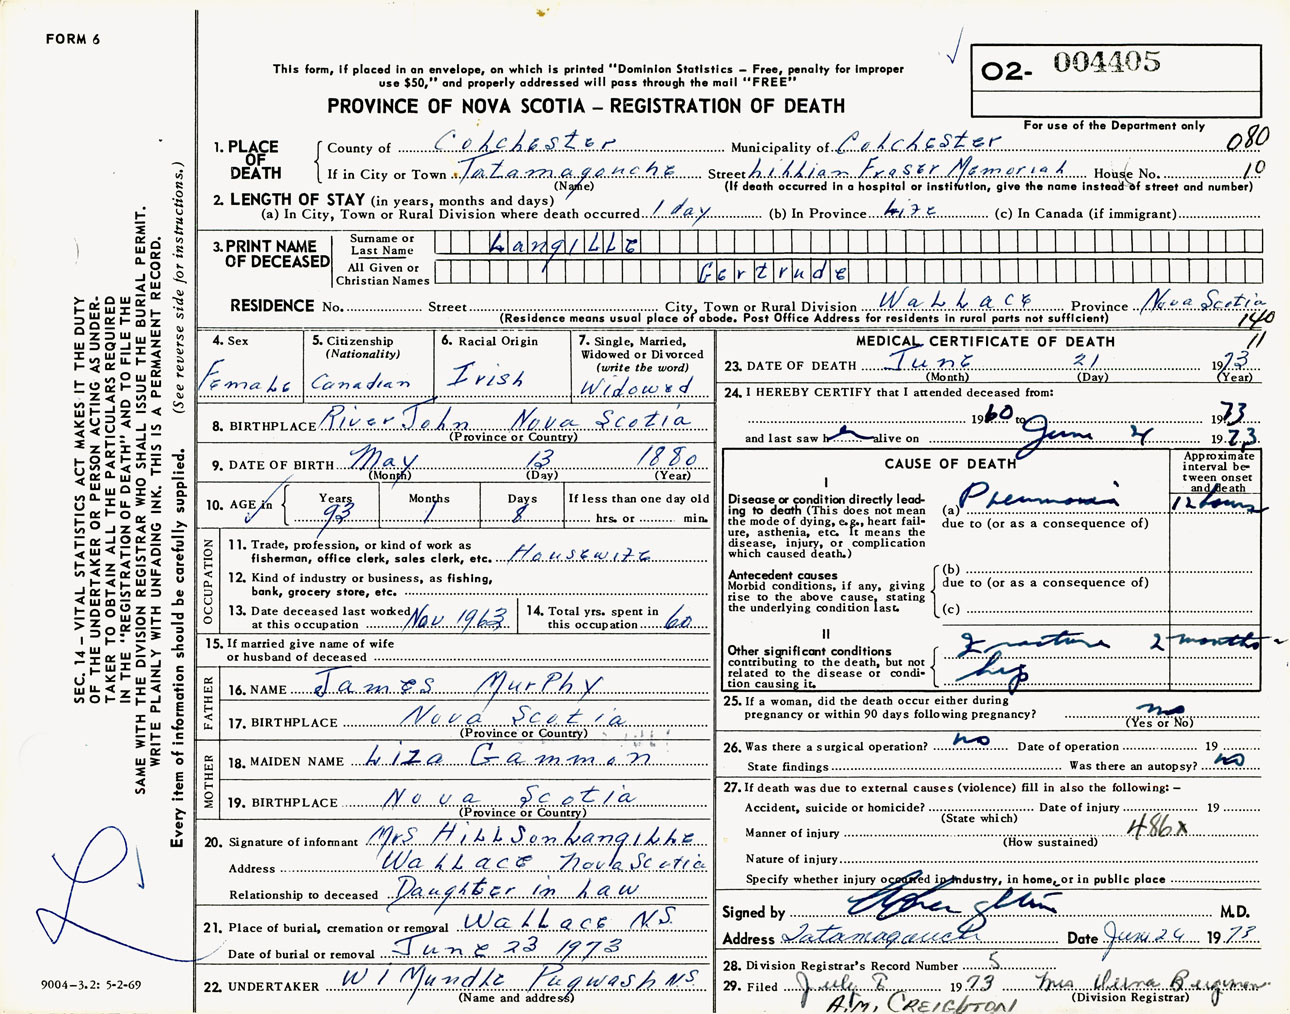 FORM 6
This form, if placed in an envelope, on which is printed "Dominion Statistics – Free, penalty for improper
use $50," and properly addressed will pass through the mail "FREE"
PROVINCE OF NOVA SCOTIA – REGISTRATION OF DEATH
02- 004405
For use of the Department only
080
1. PLACE OF DEATH
County of Colchester Municipality of Colchester
If in City or Town Tatamagouche Street Lillian Fraser Memorial House No. 10
(Name) (If death occurred in a hospital or institution, give the name instead of street and number)
2. LENGTH OF STAY (in years, months and days)
(a) In City, Town or Rural Division where death occurred 1 day (b) In Province Life (c) In Canada (if immigrant)
3. PRINT NAME OF DECEASED
Surname or Last Name Langille
All Given or Christian Names Gertrude
RESIDENCE No. Street City, Town or Rural Division Wallace Province Nova Scotia
(Residence means usual place of abode. Post Office Address for residents in rural parts not sufficient)
140
11
4. Sex Female
5. Citizenship (Nationality) Canadian
6. Racial Origin Irish
7. Single, Married, Widowed or Divorced (write the word) Widowed
8. BIRTHPLACE River John Nova Scotia
(Province or Country)
9. DATE OF BIRTH May 13 1880
(Month) (Day) (Year)
10. AGE in Years 93 Months 1 Days 8 If less than one day old hrs. or min.
OCCUPATION
11. Trade, profession, or kind of work as
fisherman, office clerk, sales clerk, etc. Housewife
12. Kind of industry or business, as fishing,
bank, grocery store, etc.
13. Date deceased last worked at this occupation Nov 1963
14. Total yrs. spent in this occupation 60
15. If married give name of wife
or husband of deceased
FATHER
16. NAME James Murphy
17. BIRTHPLACE Nova Scotia
(Province or Country)
MOTHER
18. MAIDEN NAME Liza Gammon
19. BIRTHPLACE Nova Scotia
(Province or Country)
20. Signature of informant Mrs Hillson Langille
Address Wallace Nova Scotia
Relationship to deceased Daughter in Law
21. Place of burial, cremation or removal Wallace N.S.
Date of burial or removal June 23 1973
22. UNDERTAKER W I Mundle Pugwash N.S.
(Name and address)
MEDICAL CERTIFICATE OF DEATH
23. DATE OF DEATH June 21 1973
(Month) (Day) (Year)
24. I HEREBY CERTIFY that I attended deceased from:
1960 to 1973
and last saw her alive on June 1973
CAUSE OF DEATH
Approximate interval between onset and death
I
Disease or condition directly leading to death (This does not
mean the mode of dying, e.g., heart failure, asthenia, etc. It means the
disease, injury, or complication
which caused death.)
(a) Pneumonia 12 hours
due to (or as a consequence of)
Antecedent causes
Morbid conditions, if any, giving
rise to the above cause, stating
the underlying condition last.
(b)
due to (or as a consequence of)
(c)
II
Other significant conditions
contributing to the death, but not
related to the disease or condition causing it.
Fracture 2 months
hip
25. If a woman, did the death occur either during
pregnancy or within 90 days following pregnancy? no
(Yes or No)
26. Was there a surgical operation? no Date of operation 19
State findings Was there an autopsy? no
27. If death was due to external causes (violence) fill in also the following: –
Accident, suicide or homicide? Date of injury 19
(State which)
Manner of injury 486x
(How sustained)
Nature of injury
Specify whether injury occured in industry, in home, or in public place
Signed by M.D.
Address Tatamagouche Date June 24 1973
28. Division Registrar's Record Number 5
29. Filed July 1973 Mrs
(Division Registrar)
A.M. CREIGHTON
SEC. 14 – VITAL STATISTICS ACT MAKES IT THE DUTY
OF THE UNDERTAKER OR PERSON ACTING AS UNDER-
TAKER TO OBTAIN ALL THE PARTICULARS REQUIRED
IN THE "REGISTRATION OF DEATH" AND TO FILE THE
SAME WITH THE DIVISION REGISTRAR WHO SHALL ISSUE THE BURIAL PERMIT.
WRITE PLAINLY WITH UNFADING INK. THIS IS A PERMANENT RECORD.
Every item of information should be carefully supplied. (See reverse side for instructions.)
9004-3.2: 5-2-69